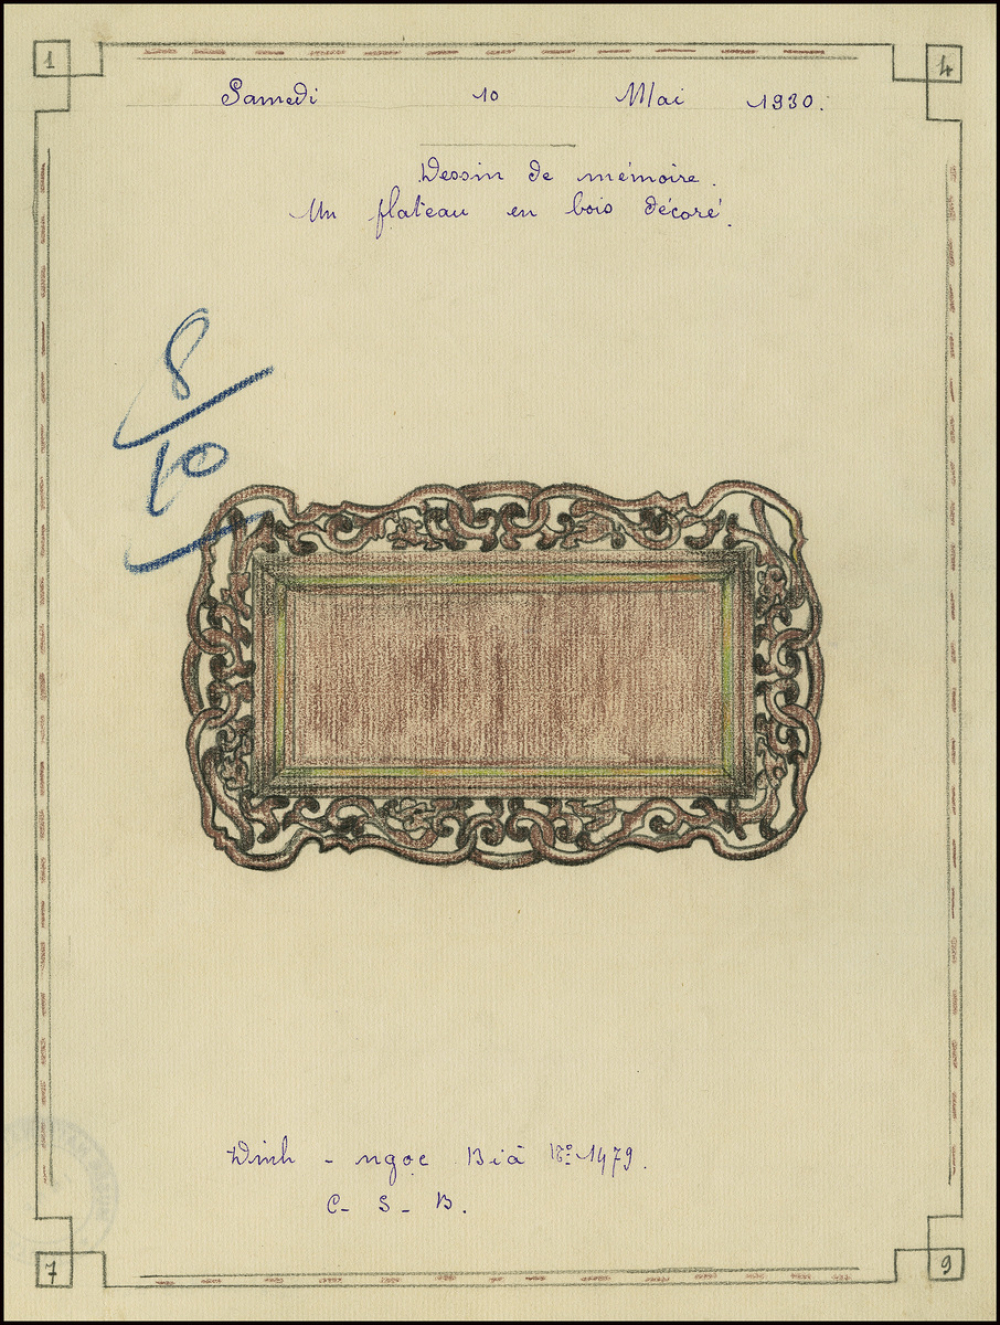 1 4
Samedi 10 Mai 1930.
Dessin de mémoire.
Un plateau en bois décoré.
8
10
Dinh - ngọc 1479.
C - S - B.
7 9